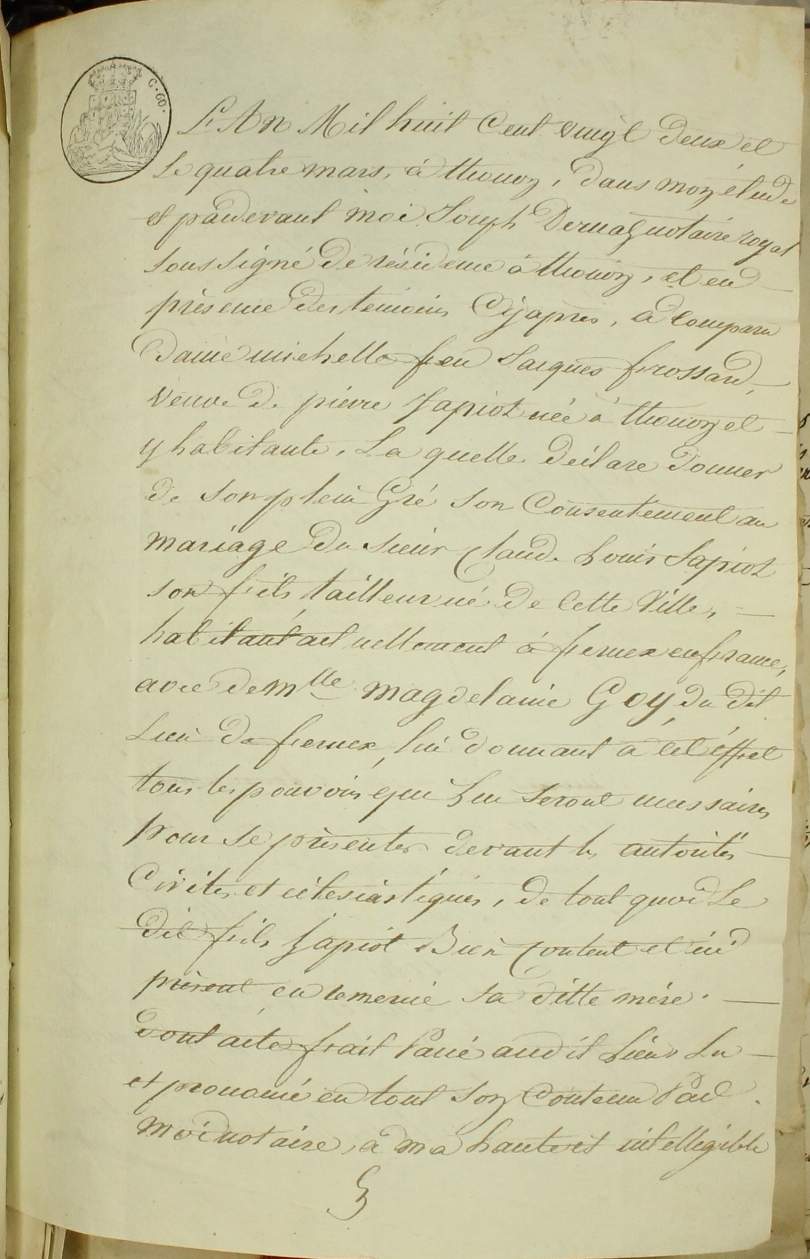 C. 60.
L'An Mil huit Cent vingt deux et
le quatre mars, à thonon, dans mon étude
et pardevant moi Joseph notaire royal
soussigné de résidence à thonon, et en
présence des temoins Cyaprès, à Comparu
Dame michelle feu Jacques frossard,
Veuve de pierre Japiot née à thonon et
y habitante, La quelle déclare donner
de son plein Gré son Consentement au
mariage du sieur Claude Louis Japiot
son fils tailleur né de Cette Ville,
habitant actuellement à fernex en france,
avec demlle magdelaine Goy du dit
Lieu de fernex, lui donnant à cet éffet
tous les pouvoirs qui Lui seront necessaires
pour se présenter devant les autorités
Civiles et éclesiastiques, de tout quoi Le
dit fils Japiot Bien Content et ici
présent en remercie sa ditte mère.
dont acte fait audit Lieu Lu
et prononcé en tout son Contenu Par
moi notaire, à ma haute et intelligible